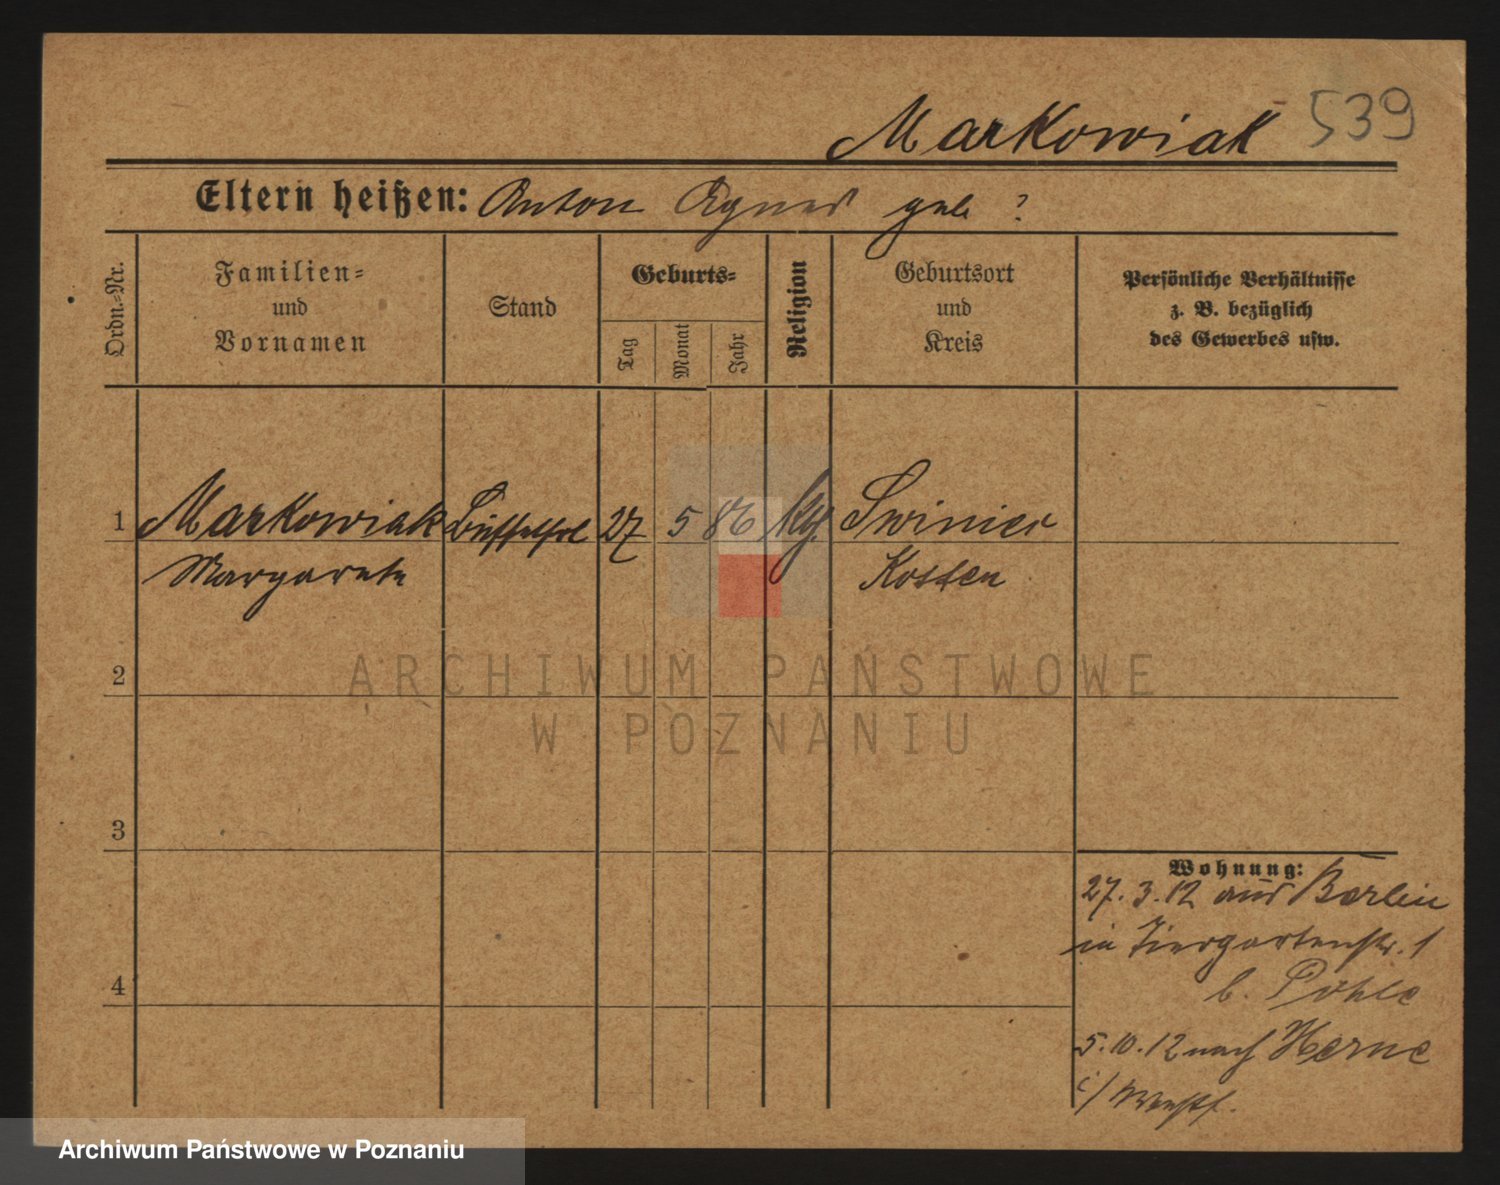 Markowiak 539
Eltern heißen: Anton Agnes geb ?
Ordn.-Nr.
Familien-
und
Vornamen
Stand
Geburts-
Tag
Monat
Jahr
Religion
Geburtsort
und
Kreis
Persönliche Verhältnisse
z. B. bezüglich
des Gewerbes usw.
1 Markowiak Büffetfrl 27 5 86 Swiniec
Margarete Kosten
2
3
4
Wohnung:
27.3.12 aus Berlin
in Tiergartenstr. 1
b. Pohle
5.10.12 nach Herne
i/ Westf.
ARCHIWUM PAŃSTWOWE
W POZNANIU
Archiwum Państwowe w Poznaniu